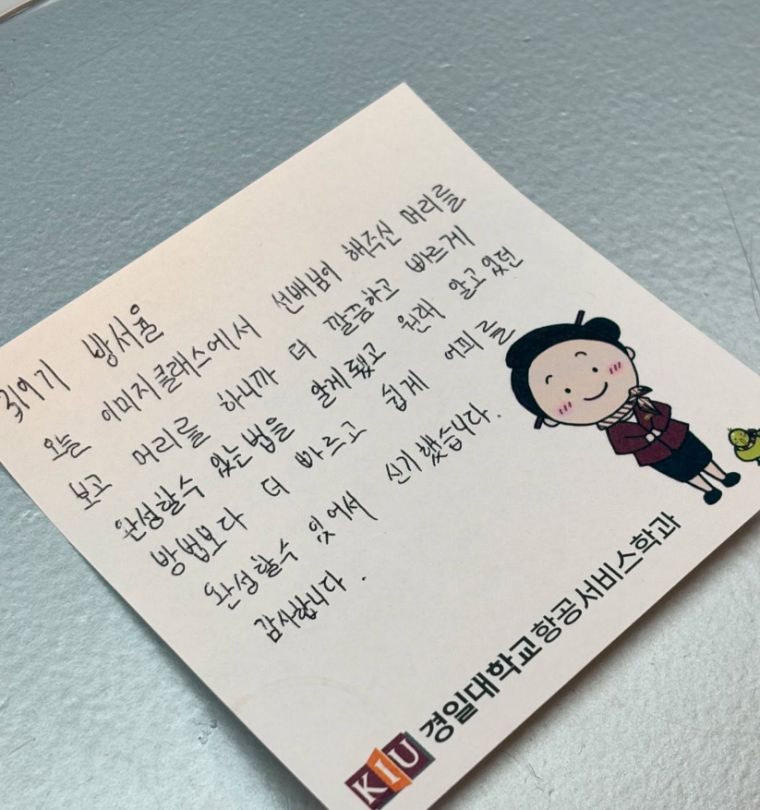 방서율
오늘 이미지클래스에서 선배님이 해주신 머리를
보고 머리를 하니까 더 깔끔하고 빠르게
완성할수 있는법을 알게됐고 원래 알고있던
방법보다 더 빠르고 쉽게 머리를
완성할수 있어서 신기했습니다.
감사합니다.
경일대학교항공서비스학과
KIU